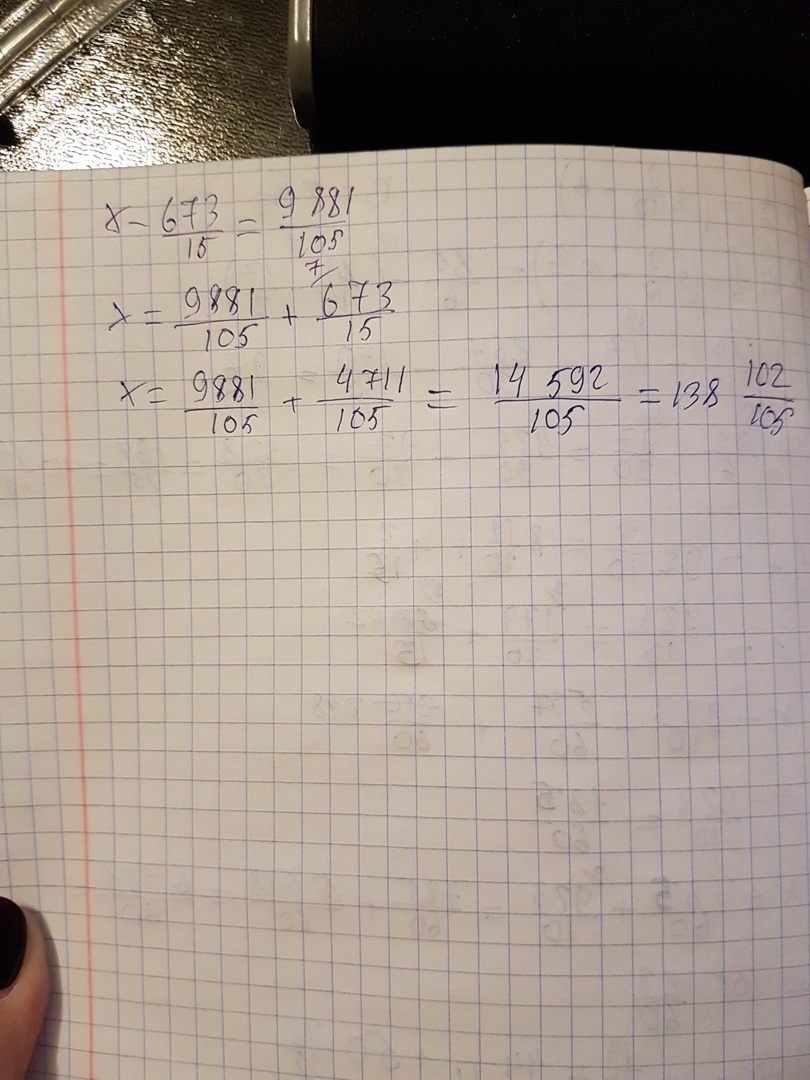 x - 673/15 = 9881/105
x = 9881/105 + 7/ 673/15
x = 9881/105 + 4711/105 = 14 592/105 = 138 102/105